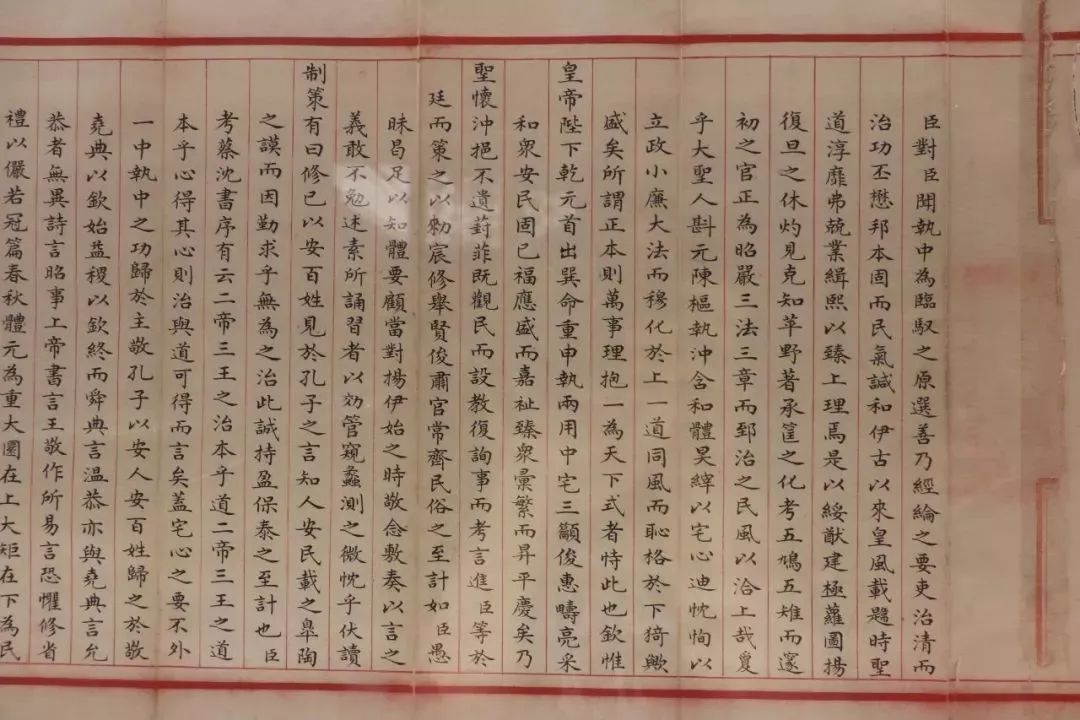 臣對臣聞執中為臨馭之原選善乃經綸之要吏治清而
治功丕懋邦本固而民氣諴和伊古以來皇風載時聖
道淳靡弗兢業緝熙以臻上理焉是以綏猷建極蘿圖揚
復旦之休灼見克知苹野著承筐之化考五鳩五雉而邃
初之官正為昭嚴三法三章而郅治之民風以洽上哉敻
乎大聖人斟元陳樞執沖含和體昊縡以宅心迪忱恂以
立政小廉大法而穆化於上一道同風而恥格於下猗歟
盛矣所謂正本則萬事理抱一為天下式者恃此也欽惟
皇帝陛下乾元首出巽命重申執兩用中宅三籲俊惠疇亮采
和眾安民固已福應盛而嘉祉臻眾彙繁而昇平慶矣乃
聖懷沖挹不遺葑菲既觀民而設教復詢事而考言進臣等於
廷而策之以勑宸修舉賢俊肅官常齊民俗之至計如臣愚
昧曷足以知體要顧當對揚伊始之時敬念敷奏以言之
義敢不勉述素所誦習者以効管窺蠡測之微忱乎伏讀
制策有曰修己以安百姓見於孔子之言知人安民載之皋陶
之謨而因勤求乎無為之治此誠持盈保泰之至計也臣
考蔡沈書序有云二帝三王之治本乎道二帝三王之道
本乎心得其心則治與道可得而言矣蓋宅心之要不外
一中執中之功歸於主敬孔子以安人安百姓歸之於敬
堯典以欽始益稷以欽終而舜典言溫恭亦與堯典言允
恭者無異詩言昭事上帝書言王敬作所易言恐懼修省
禮以儼若冠篇春秋體元為重大圜在上大矩在下為民